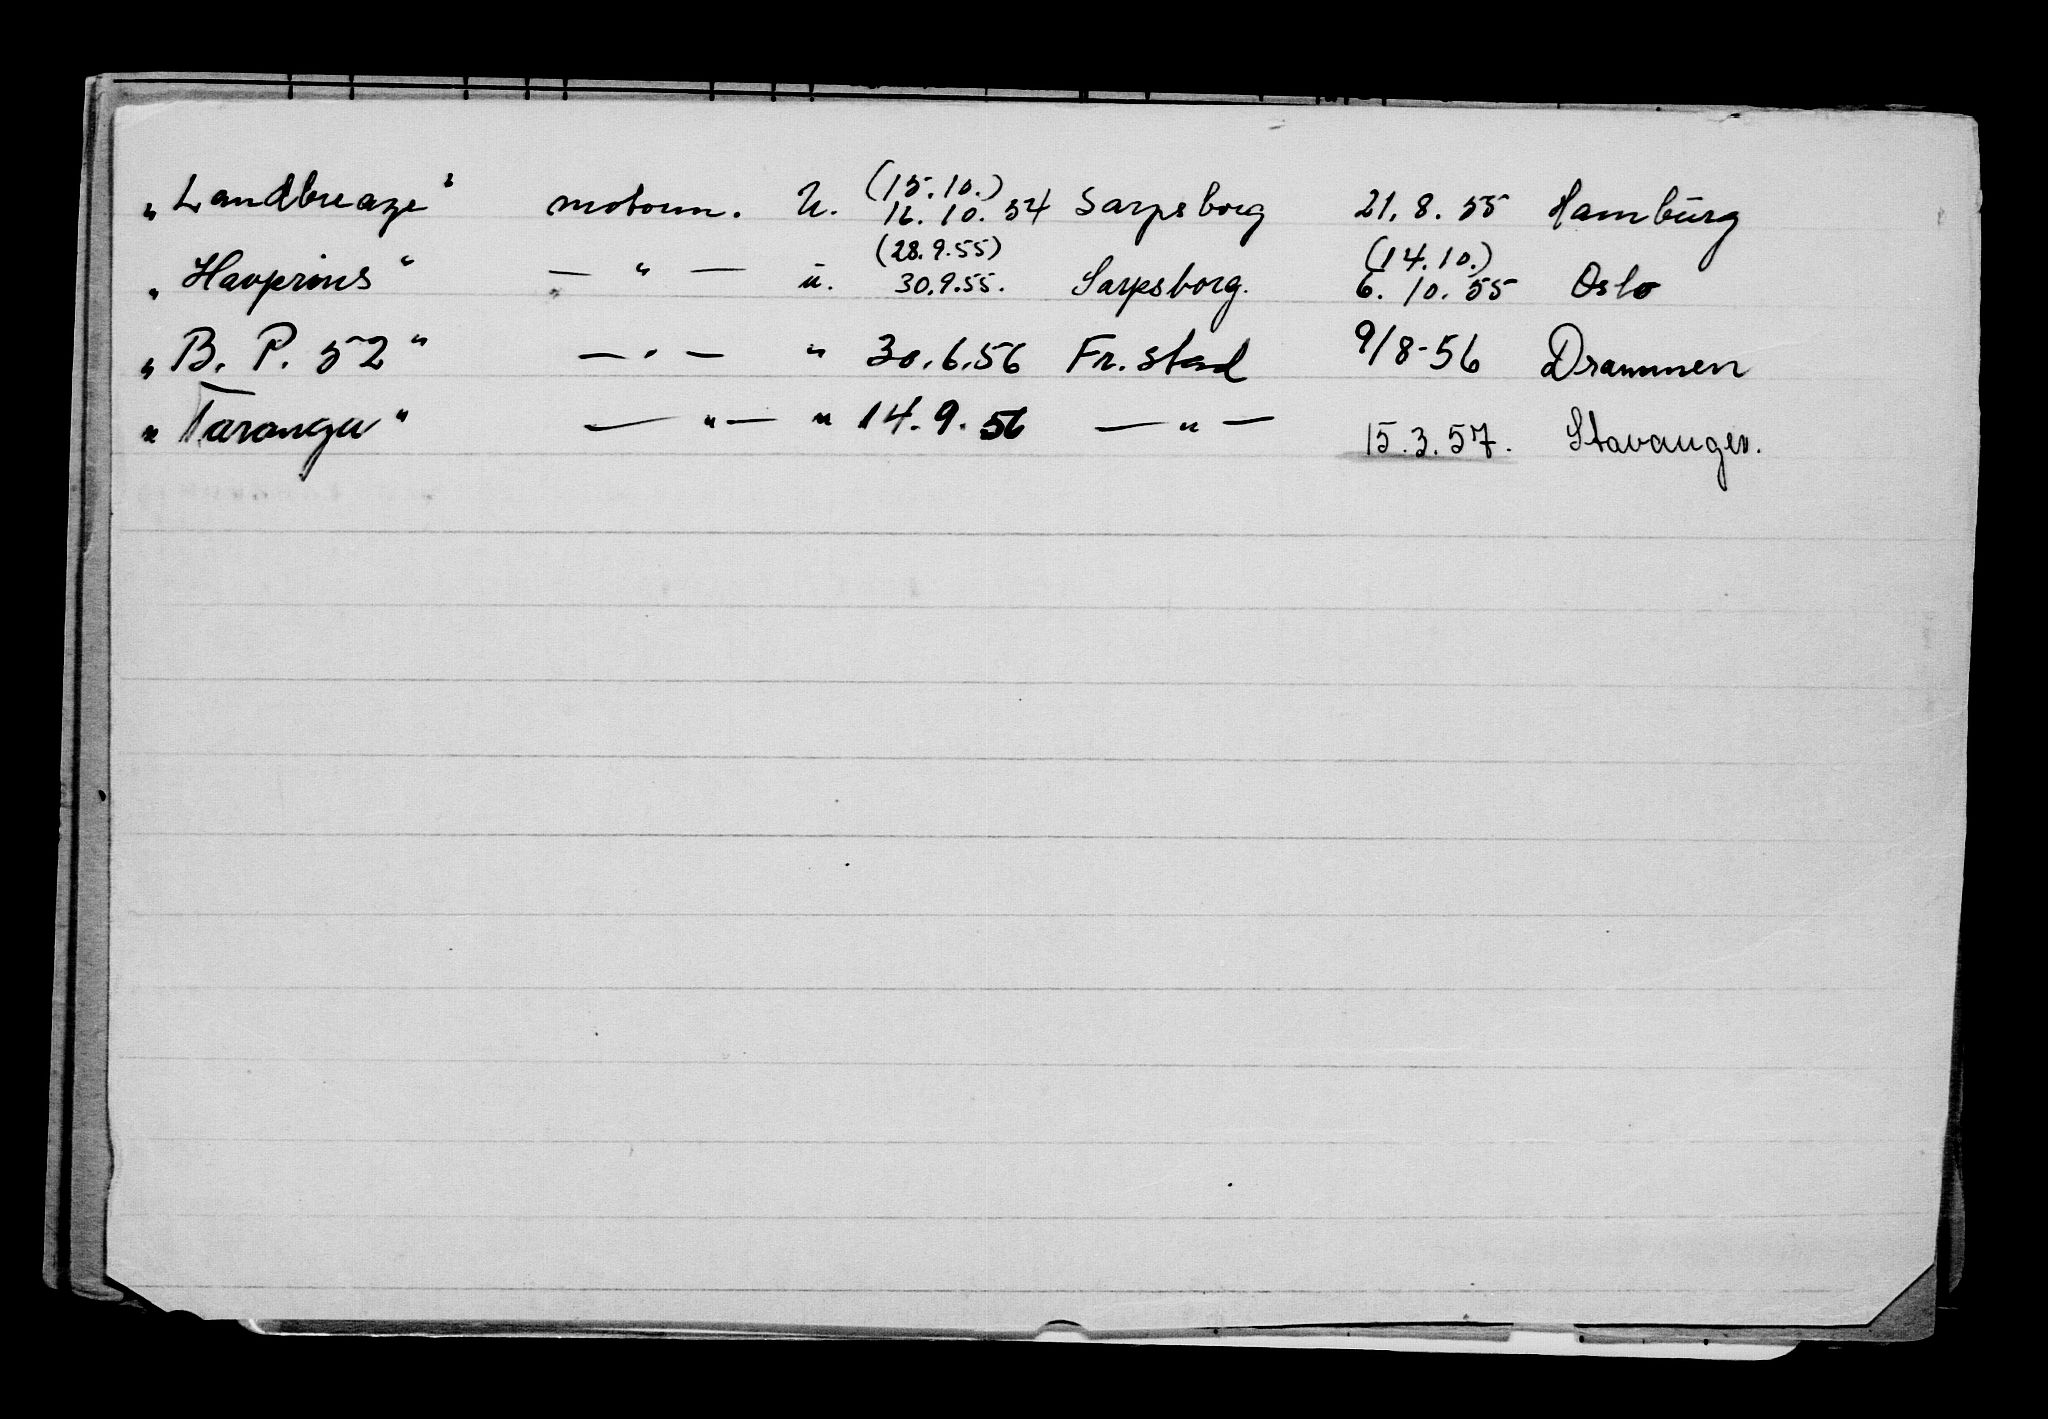 „Landbreaze" motorm. U. (15.10.) 16.10.54 Sarpsborg 21.8.55 Hamburg
„Havprins" — " — u. (28.9.55) 30.9.55. Sarpsborg. (14.10.) 6.10.55 Oslo
„B. P. 52" — " — " 30.6.56 Fr.stad 9/8-56 Drammen
„Taranga" — " — " 14.9.56 — " — 15.3.57. Stavanger.